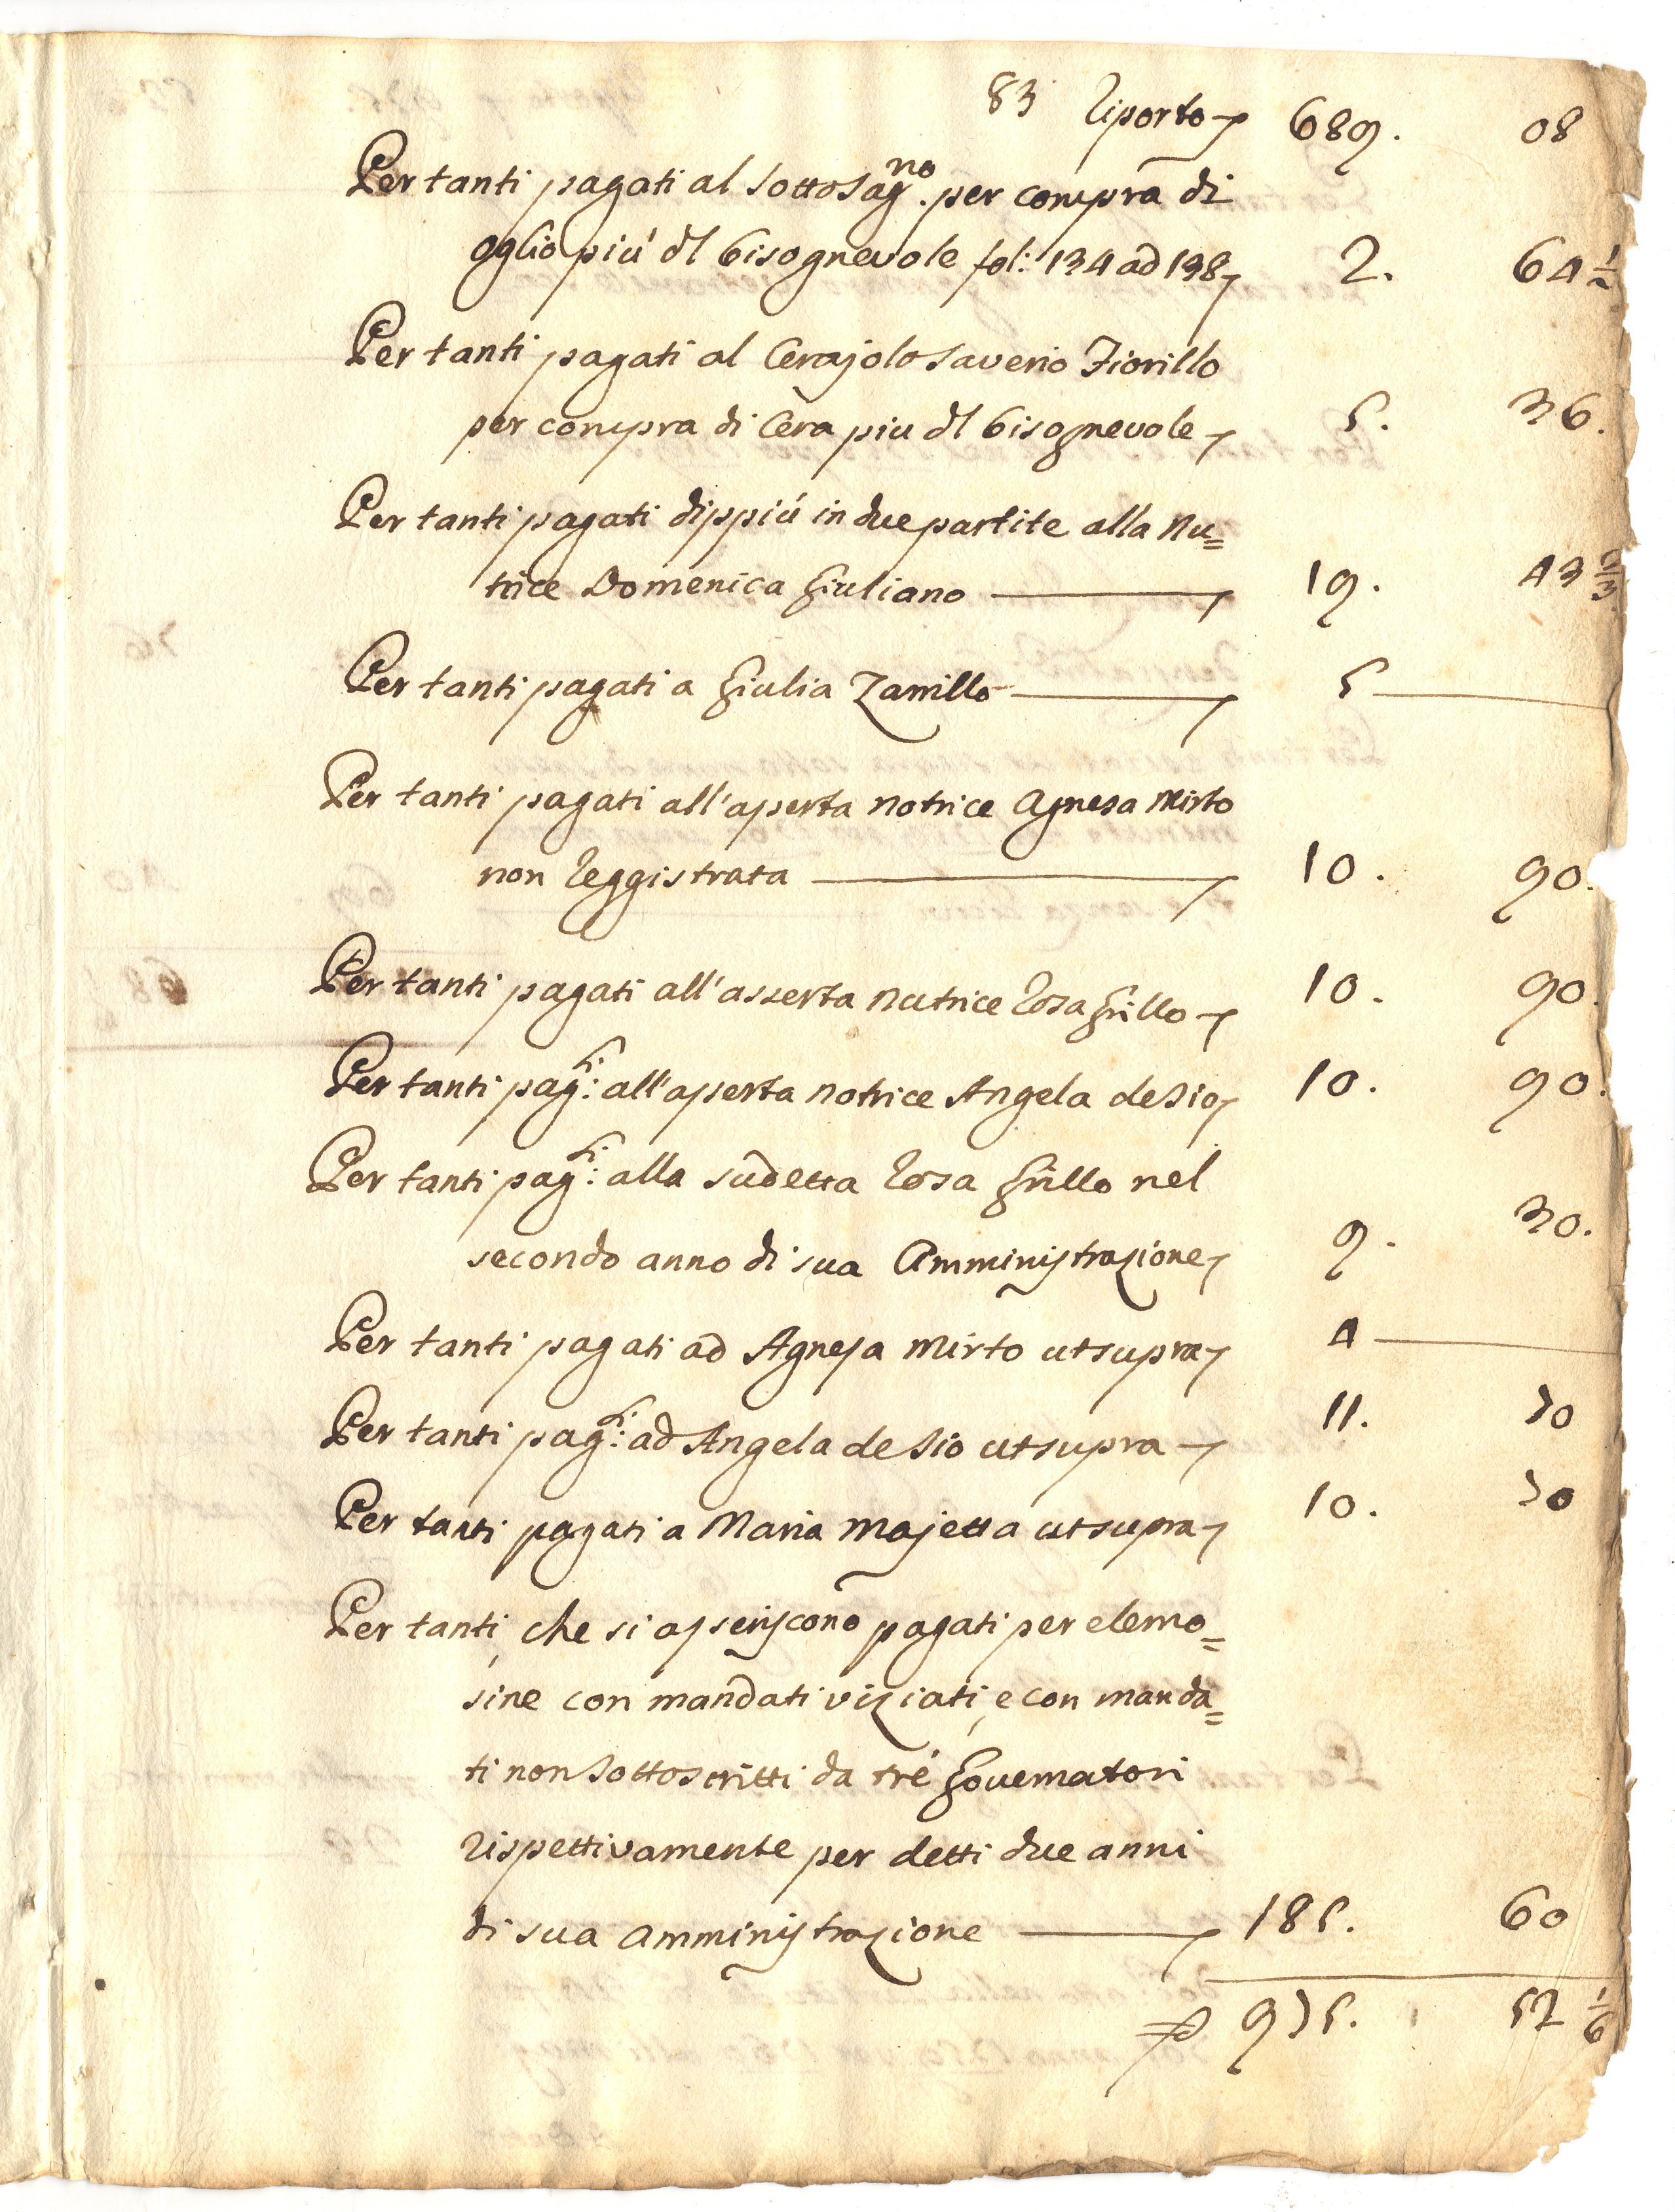 83 Riporto 689. 08
Per tanti pagati al Sottosagr.no per compra di
oglio più dl bisognevole fol: 134 ad 138 2. 64 1/2
Per tanti pagati al Cerajolo Saverio Fiorillo
per compra di Cera piu dl bisognevole 5. 36.
Per tanti pagati dippiù in due partite alla Nu=
trice Domenica Giuliano 19. 43 2/3
Per tanti pagati a Giulia Zarrillo 5
Per tanti pagati all'asserta notrice Agnesa Mirto
non Reggistrata 10. 90.
Per tanti pagati all'asserta nutrice Rosa Grillo 10. 90.
Per tanti pag:ti all'asserta notrice Angela de Sio 10. 90.
Per tanti pag:ti alla sudetta Rosa Grillo nel
secondo anno di sua Amministrazione 9. 30.
Per tanti pagati ad Agnesa Mirto ut supra 4
Per tanti pag:ti ad Angela de Sio ut supra 11. 70
Per tanti pagati a Maria Majetta ut supra 10. 70
Per tanti, che si asseriscono pagati per elemo=
sine con mandati viziati, e con manda=
ti non Sottoscritti da tré Governatori
rispettivamente per detti due anni
di sua Amministrazione 185. 60
975. 52 1/6